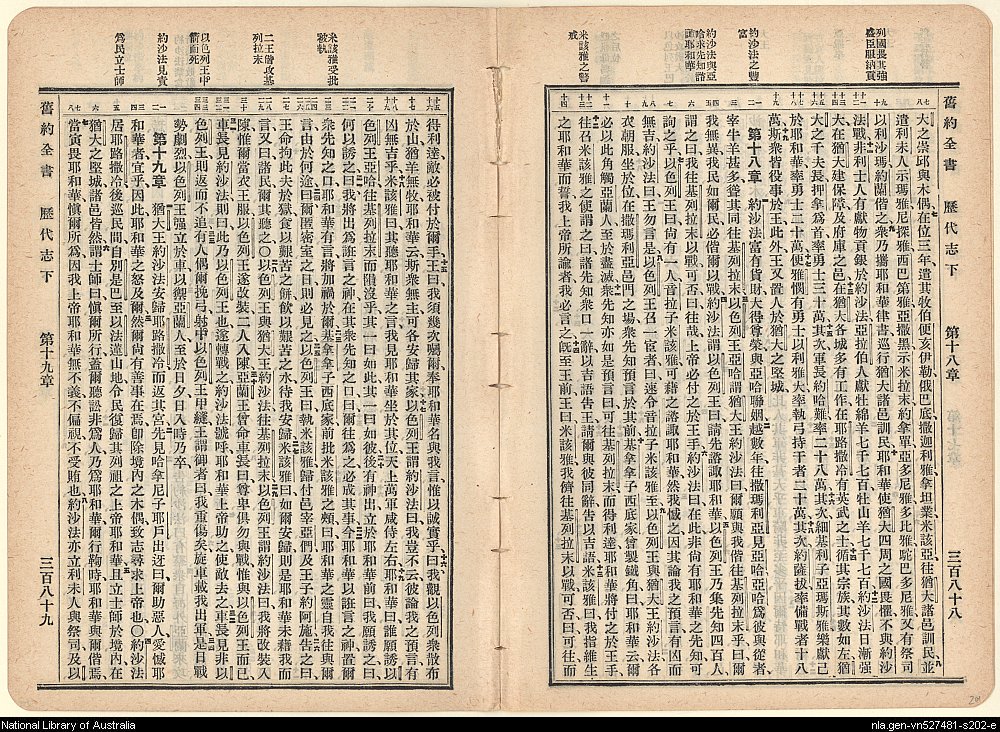 舊約全書 歷代志下 第十八章 三百八十八
列國畏其強盛臣服納貢
約沙法之豐富
約沙法與亞哈求先知諮諏耶和華
米該雅之警戒
大之崇邱與木偶在位三年遣其牧伯便亥伊勒俄巴底撒迦利雅拿坦業米該亞往猶大諸邑訓民並
遣利未人示瑪雅尼探雅西巴第雅亞撒黑示米拉末約拿單亞多尼雅多比雅駝巴多尼雅又有祭司
以利沙瑪約蘭偕之衆乃攜耶和華律書巡行猶大諸邑訓民耶和華使猶大四周之國畏懼不與約沙
法戰非利士人有獻物貢銀於約沙法亞拉伯人獻牡綿羊七千七百牡山羊七千七百約沙法日漸強
大在猶大建保障及府庫之邑在猶大各城多有工作在耶路撒冷有英武之士循其宗族其數如左猶
大之千夫長押拿爲首率勇士三十萬其次軍長約哈難率二十八萬其次細基利子亞瑪斯雅樂獻己
於耶和華率勇士二十萬便雅憫有勇士以利雅大率執弓持干者二十萬其次約薩拔率備戰者十八
萬斯衆皆役事於王此外王又置人於猶大之堅城
第十八章 約沙法富有貨財大得尊榮與亞哈聯姻越數年往撒瑪利亞見亞哈亞哈爲彼與從者
宰牛羊甚多聳其同往基列拉末以色列王亞哈謂猶大王約沙法曰爾願與我偕往基列拉末乎曰爾
我無異我民如爾民必偕爾以戰約沙法謂以色列王曰請先諮諏耶和華以色列王乃集先知四百人
謂之曰我往基列拉末以戰可否曰往哉上帝必付之於王手約沙法曰在此非尚有耶和華之先知可
詢之乎以色列王曰尚有一人音拉子米該雅可藉之諮諏耶和華然我憾之因其論我之預言有凶而
無吉約沙法曰王勿言是以色列王召一宦者曰速令音拉子米該雅至以色列王與猶大王約沙法各
衣朝服坐於位在撒瑪利亞邑門之場衆先知預言於其前基拿拿子西底家曾製鐵角曰耶和華云爾
必以此角觸亞蘭人至於盡滅衆先知亦如是預言曰可往基列拉末而得利達耶和華將付之於王手
往召米該雅之使謂之曰諸先知衆口一辭以吉語告王請爾與彼同辭告以吉語米該雅曰我指維生
之耶和華而誓我上帝所諭者我必言之既至王前王曰米該雅我儕往基列拉末以戰可否曰可往而
舊約全書 歷代志下 第十九章 三百八十九
米該雅受批被執
二王偕攻基列拉末
以色列王中箭而死
約沙法見責
爲民立士師
得利達敵必被付於爾手王曰我須幾次囑爾奉耶和華名與我言惟以誠實乎曰我觀以色列衆散布
於山猶羊無牧耶和華云斯衆無主可各安歸其家以色列王謂約沙法曰我豈不云彼論我之預言有
凶無吉乎米該雅曰其聽耶和華之言我見耶和華坐於其位天上萬軍咸侍左右耶和華曰誰願誘以
色列王亞哈往基列拉末而隕沒乎其一曰如此其一曰如彼後有神出立於耶和華前曰我願誘之曰
何以誘之曰我將出爲誑言之神在其衆先知之口曰爾往爲之必成其事今耶和華以誑言之神置爾
衆先知之口耶和華有言將加禍於爾基拿拿子西底家前批米該雅之頰曰耶和華之靈自我往與爾
言由於何途曰爾匿密室之日則必見之以色列王曰執米該雅歸付邑宰亞們及王子約阿施告之曰
王命拘此夫於獄食以艱苦之餅飲以艱苦之水待我安歸米該雅曰如爾安歸則是耶和華未藉我
言又曰諸民爾其聽之〇以色列王與猶大王約沙法往基列拉末以色列王謂約沙法曰我將改裝入
陳惟爾當衣王服以色列王遂改裝二人入陳亞蘭王曾命車長曰尊卑俱勿與戰惟與以色列王而已
車長見約沙法則曰此乃以色列王也遂轉戰之約沙法號呼耶和華上帝助之使敵去之車長見非以
色列王則返而不追有人偶爾挽弓射中以色列王甲縫王謂御者曰我重傷矣旋車載我出軍是日戰
勢劇烈以色列王強立於車以禦亞蘭人至於日夕日入時乃卒
第十九章 猶大王約沙法安歸耶路撒冷而返其宮先見哈拿尼子耶戶出迓曰爾助惡人愛憾耶
和華者宜乎因此耶和華之怒及爾然爾尚有善事在焉卽除境內之木偶致志尋求上帝也〇約沙法
居耶路撒冷後巡民間自別是巴至以法蓮山地令民復歸其列祖之上帝耶和華且立士師於境內在
猶大之堅城諸邑皆然謂士師曰慎爾所行蓋爾聽訟非爲人乃爲耶和華爾行鞫時耶和華與爾偕焉
當寅畏耶和華慎爾所爲因我上帝耶和華無不義不偏視不受賄也約沙法亦立利未人與祭司及以
National Library of Australia
nla.gen-vn527481-s202-e